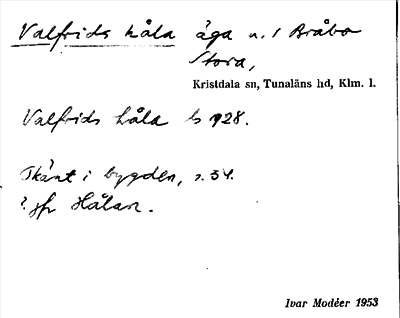 Valfrids håla äga n. t Bråbo
Stora,
Kristdala sn, Tunaläns hd, Klm. l.
Valfrids håla b 1928.
Skämt i bygden, s. 34.
? jfr Hålan.
Ivar Modéer 1953